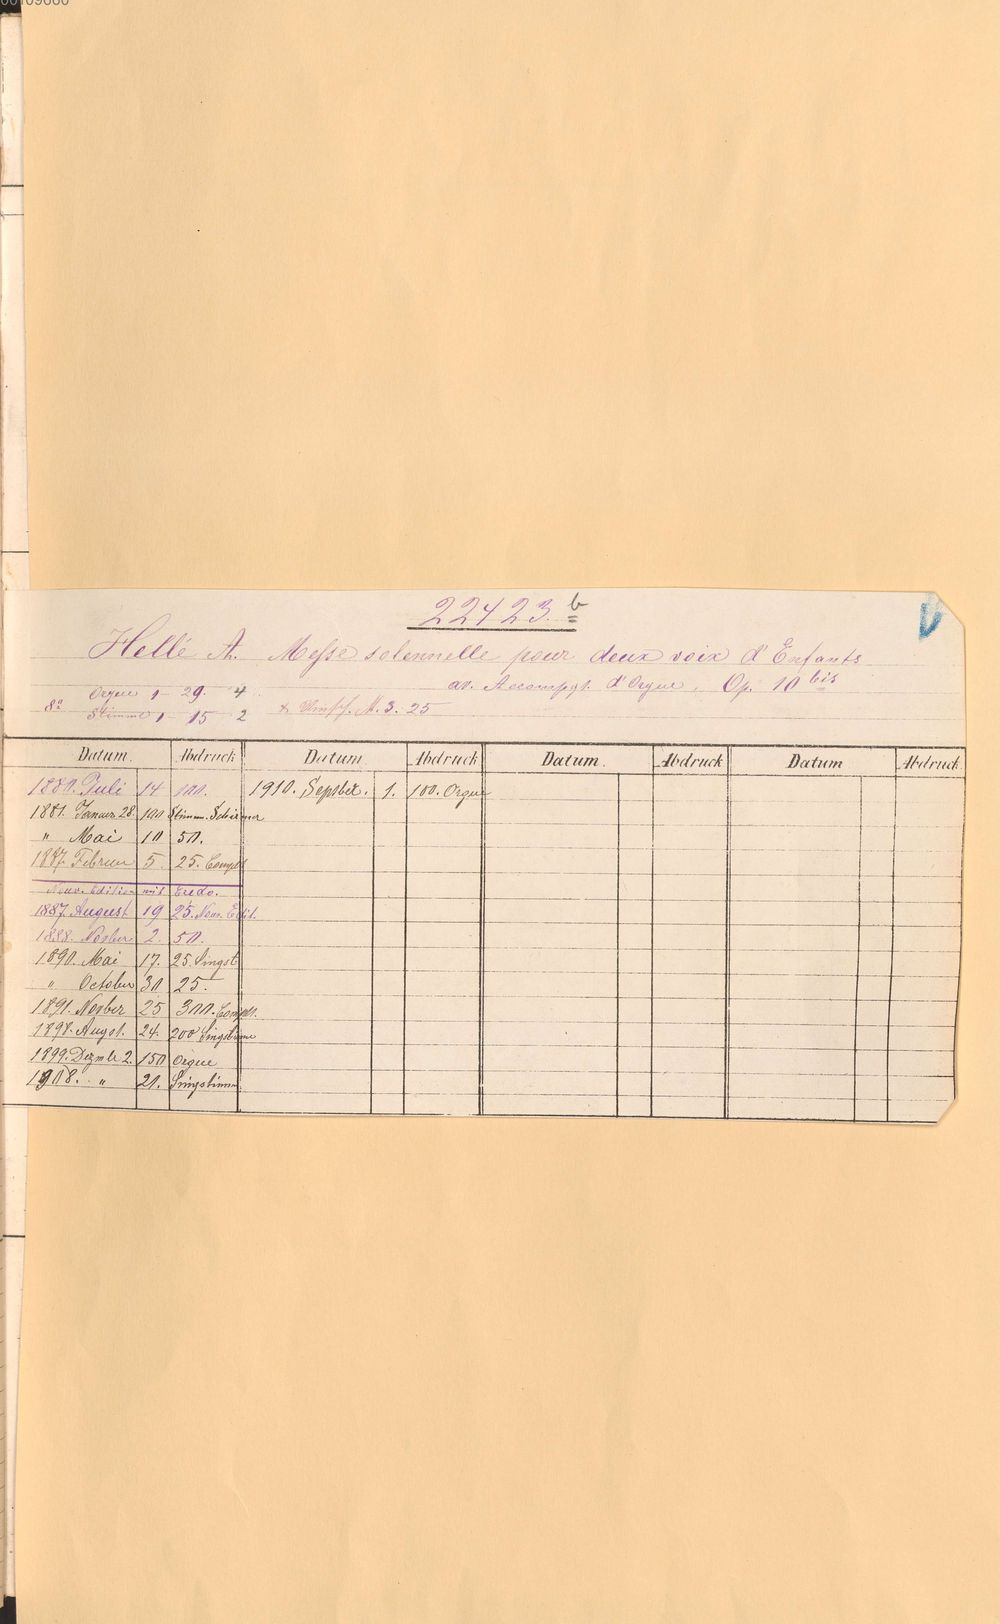 22423.b
Hellé A. Messe solennelle pour deux voix d'Enfants
av. Accompgt. d'Orgue. Op. 10 bis
Orgue 1 - 29. 4
8o Stimme 1 - 15 2 & Umschl. M. 3. 25
Datum. Abdruck Datum. Abdruck Datum. Abdruck Datum Abdruck
1880. Juli 14 100. 1910. Septber. 1. 100. Orgue
1881. Januar 28. 100 Stimm. Schirmer
" Mai 10 50.
1887. Februar 5. 25. Complt
Nouv. Edition mit Credo.
1887. August 19 25. Nouv. Edit.
1888. Novber 2. 50.
1890. Mai 17. 25. Singst
" October 30 25.
1891. Novber 25 300. Complt.
1898. Augst. 24. 200 Singstimme
1899. Dezmbr 2. 150 Orgue
1908. " 21. Singstimm